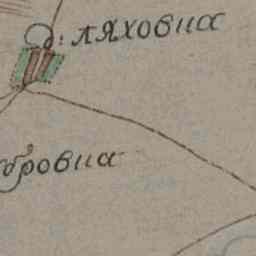 д: ляховиа
бровиа